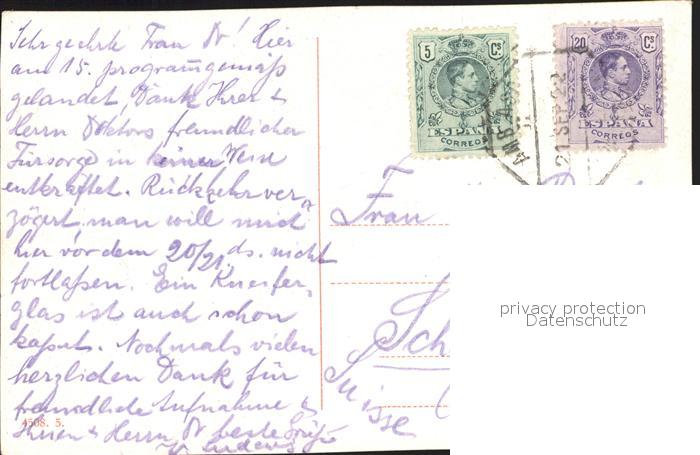 Sehr geehrte Frau Dr! Hier
am 15. programgemäß
gelandet, Dank Ihrer &
Herrn Doktors freundlicher
Fürsorge in keiner Weise
entkräftet. Rückkehr ver-
zögert, man will mich
hier vor dem 20/21. ds. nicht
fortlaßen. Ein Kneifer-
glas ist auch schon
kaput. Nochmals vielen
herzlichen Dank für
freundliche Aufnahme &
Ihnen & Herrn Dr beste Grüße
4508. 5.
5 Cs
ESPAÑA
CORREOS
20 Cs
ESPAÑA
CORREOS
21 SEP 22
Frau
Sch
Suisse
privacy protection
Datenschutz